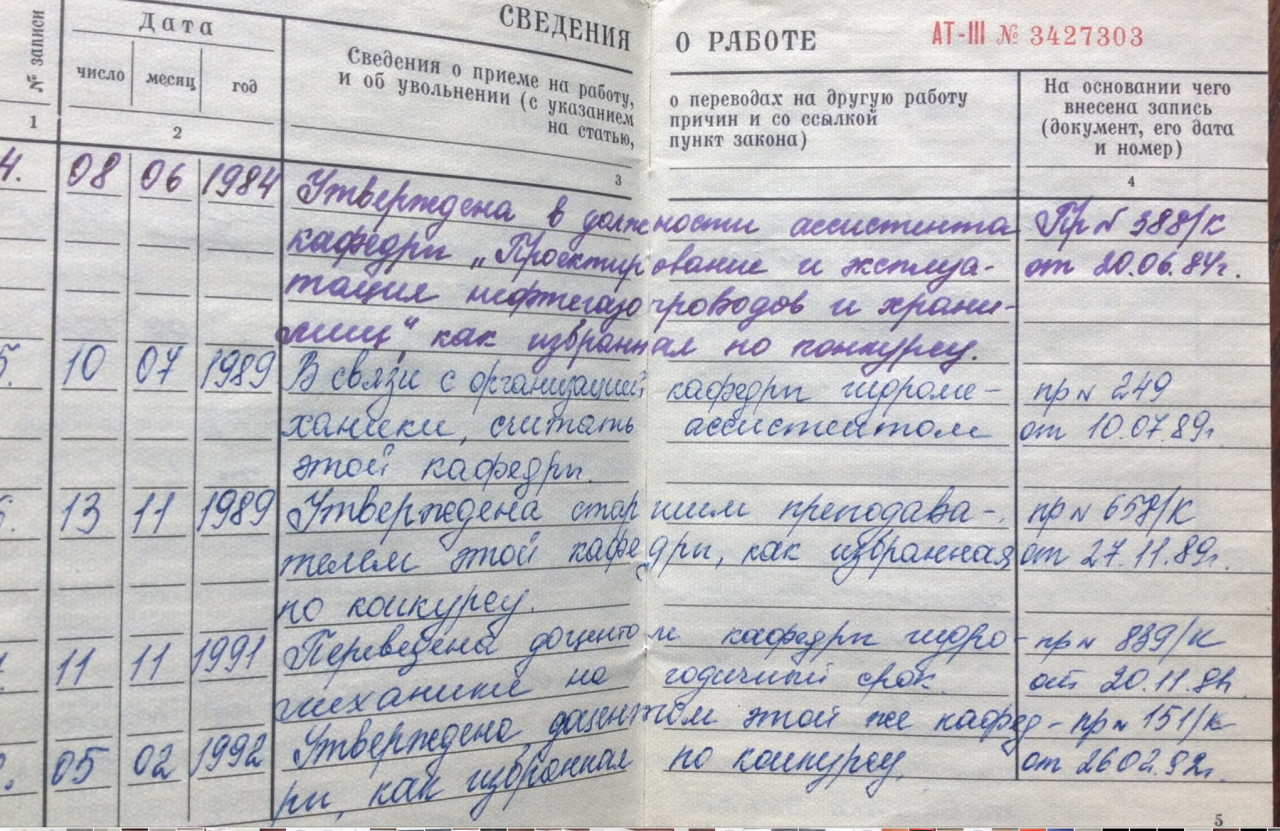 СВЕДЕНИЯ О РАБОТЕ АТ-III № 3427303
№ записи
Дата
число месяц год
Сведения о приеме на работу, о переводах на другую работу
и об увольнении (с указанием причин и со ссылкой
на статью, пункт закона)
На основании чего
внесена запись
(документ, его дата
и номер)
1 2 3 4
4. 08 06 1984 Утверждена в должности ассистента Пр № 388/К
кафедры „Проектирование и эксплуа- от 20.06.84г.
тация нефтегазопроводов и храни-
лищ“, как избранная по конкурсу.
5. 10 07 1989 В связи с организацией кафедры гидроме- пр № 249
ханики, считать ассистентом от 10.07.89г.
этой кафедры.
13 11 1989 Утверждена старшим преподава- пр № 658/К
телем этой кафедры, как избранная от 27.11.89г.
по конкурсу.
11 11 1991 Переведена доцентом кафедры гидро- пр № 839/К
механики на годичный срок. от 20.11.
Утверждена доцентом этой же кафед- пр № 151/к
05 02 1992 ры, как избранная по конкурсу. от 26 02.92г.
5